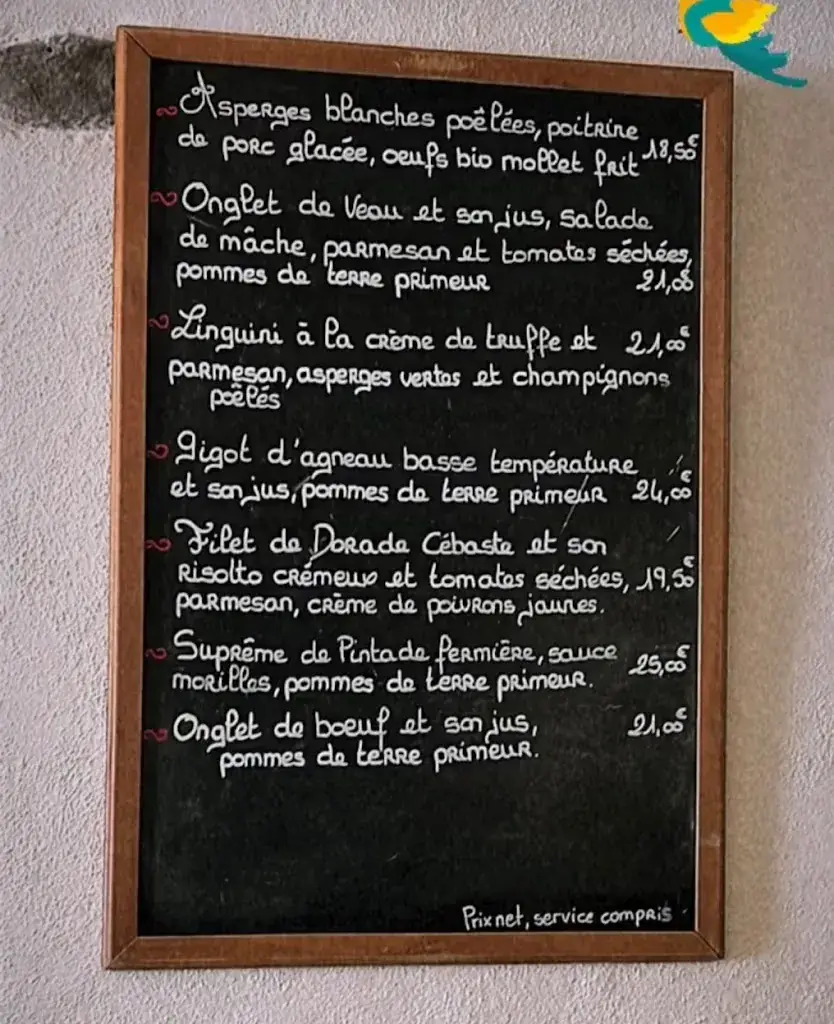 Asperges blanches poêlées, poitrine
de porc glacée, oeufs bio mollet frit 18,50€
Onglet de Veau et son jus, salade
de mâche, parmesan et tomates séchées,
pommes de terre primeur 21,00€
Linguini à la crème de truffe et 21,00€
parmesan, asperges vertes et champignons
poêlés
Gigot d'agneau basse température
et son jus, pommes de terre primeur 24,00€
Filet de Dorade Cébaste et son
risotto crémeux et tomates séchées, 19,50€
parmesan, crème de poivrons jaunes.
Suprême de Pintade fermière, sauce 25,00€
morilles, pommes de terre primeur.
Onglet de boeuf et son jus, 21,00€
pommes de terre primeur.
Prix net, service compris